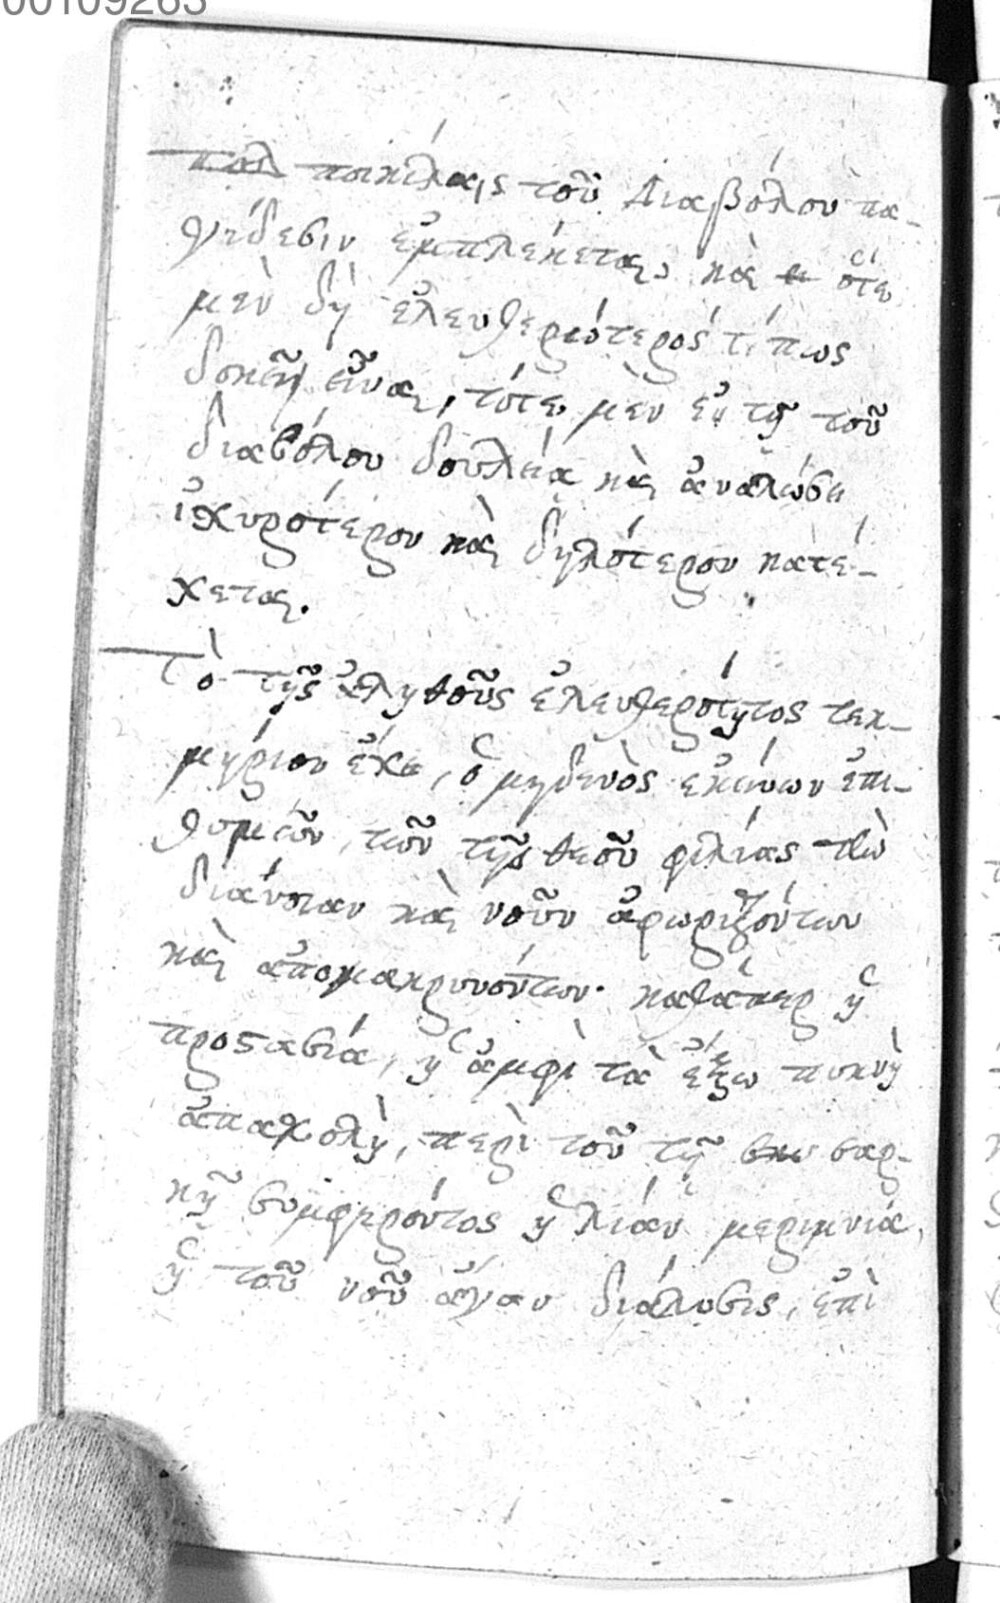 00109263
ποικίλαις τοῦ Διαβόλου πα-
γίδεσιν ἐμπλέκεται, καὶ ὅτε
μὲν δὴ ἐλευθεριώτερός τί πως
δοκεῖ εἶναι, τότε μὲν ἐν τῇ τοῦ
διαβόλου δουλεία καὶ ἀναλώσει
ἰχυρότερον καὶ δηλότερον κατέ-
χεται.
Τὸ τῆς ἀληθοῦς ἐλευθερότητος τεκ-
μήριον ἔχει, ὁ μηδενὸς ἐκείνων ἐπι-
θυμιῶν, τῶν τῆς θεοῦ φιλίας τὴν
διάνοιαν καὶ νοῦν ἀφωριζόντων
καὶ ἀπομακρυνούντων· καθάπερ ἡ
προστασία, ἡ ἀμφὶ τὰ ἔξω πυκνὴ
ἀπασχολὴ, περὶ τοῦ τῇ σαρ-
κὶ συμφέροντος ἡ λίαν μεριμνία,
ἡ τοῦ νοῦ ἄγαν διάλυσις, ἐπὶ